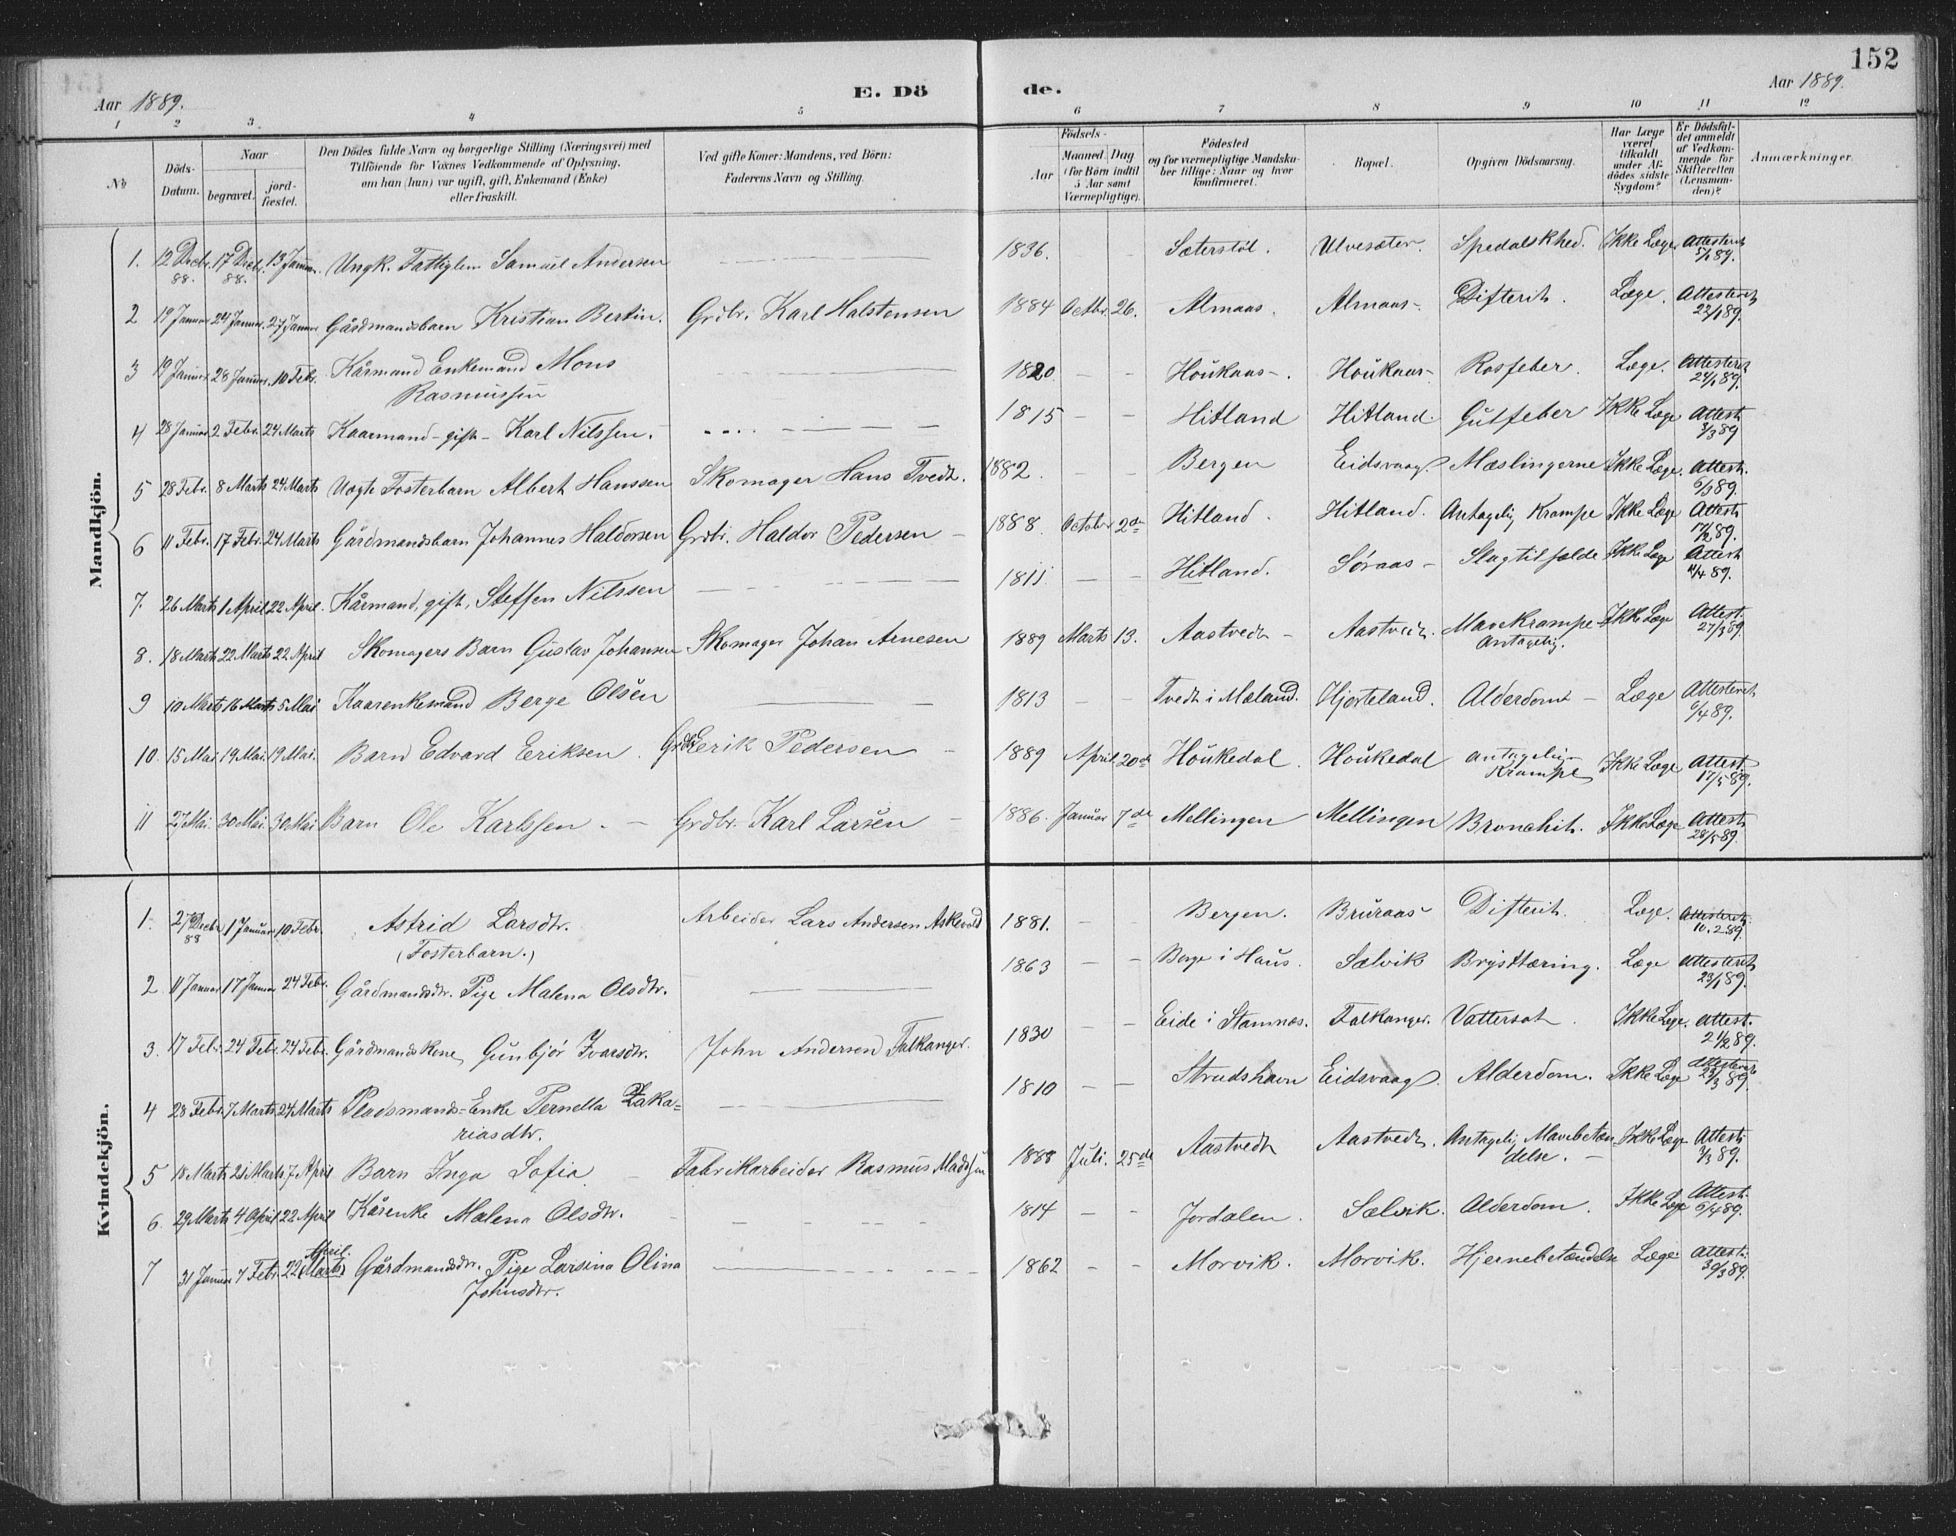 152
Aar 1889. E. Dö de. Aar 1889.
1 2 3 4 5 6 7 8 9 10 11 12
№
Döds-Datum.
Naar begravet. jordfæstet.
Den Dödes fulde Navn og borgerlige Stilling (Næringsvei) med Tilföiende for Voxnes Vedkommende af Oplysning, om han (hun) var ugift, gift, Enkemand (Enke) eller fraskilt.
Ved gifte Koner: Mandens, ved Börn: Faderens Navn og Stilling.
Födsels-
Aar
Maaned Dag (for Börn indtil 5 Aar samt Værnepligtige).
Födested og for værnepligtige Mandskaber tillige: Naar og hvor konfirmeret.
Bopæl.
Opgiven Dödsaarsag.
Har Læge været tilkaldt under Afdödes sidste Sygdom?
Er Dödsfaldet anmeldt af Vedkommende for Skifteretten (Lensmanden)?
Anmærkninger.
Mandkjön.
1. 12 Decbr. 88. 17 Decb. 88. 13 Januar. Ungk. Fattiglem Samuel Andersen 1836. - Sæterstøl. Ulvesæter. Spedalskhed. Ikke Læge Attesteret 5/1 89.
2 19 Januar 24 Januar. 27 Januar Gårdmandsbarn Kristian Bertin. Grdbr. Karl Halstensen 1884 Octbr. 26. Almaas. Almaas- Difterit. Læge. Attesteret 22/1 89.
3 19 Januar. 28 Januar. 10 Febr. Kårmand Enkemand Mons Rasmussen 1820. - - Houkaas-. Houkaas- Rosfeber. Læge. Attesteret 24/1 89.
4 28 Januar 2 Febr. 24 Marts Kaarmand - gift - Karl Nilssen. 1815 - - Hitland Hitland. Gulfeber Ikke Læge Attest. 3/3 89
5 28 Febr. 8 Marts 24 Marts Uægte Fosterbarn Albert Hanssen Skomager Hans Tvedt. 1882. - - Bergen Eidsvaag Mæslingerne Ikke Læge. Attest. 6/3 89.
6 11 Febr. 17 Febr. 24 Marts Gårdmandsbarn Johannes Haldorsen Grdbr. Haldor Pedersen - 1888. October 2de Hitland. Hitland. Antagelig Krampe Ikke Læge Attest. 17/2 89.
7. 26 Marts 1 April 22 April. Kårmand, gift, Steffen Nilssen 1811 - - Hitland. Søraas - Slagtilfælde Ikke Læge Attest. 11/4 89.
8. 18 Marts 22 Marts 22 April Skomagers Barn Gustav Johansen Skomager Johan Arnesen 1889 Marts 13. Aastvedt - Aastvedt. Mavekrampe Antagelig. Ikke Læge Attest. 27/3 89.
9 10 Marts 16 Marts 5 Mai Kaarenkemand Berge Olsen 1813 - - Tvedt i Mæland. Hjorteland. Alderdom - Læge Attesteret 6/4 89.
10. 15 Mai 19 Mai. 19 Mai. Barn Edvard Eriksen. Grdbr. Erik Pedersen - 1889 April 20de Houkedal. Houkedal antagelig Krampe Ikke Læge Attest. 17/5 89.
11 27 Mai. 30 Mai. 30 Mai Barn Ole Karlssen. - Grdbr. Karl Larsen - 1886. Januar 7de Mellingen Mellingen Bronchit. Ikke Læge Attest. 28/5 89.
Kvindekjön.
1. 27 Decbr 88 1 Januar 10 Febr. Astrid Larsdtr. (Fosterbarn.) Arbeider Lars Andersen Askevold 1881. - Bergen. Bruraas- Difterit. Læge. Attesteret 10. 2. 89.
2. 11 Januar 17 Januar 24 Febr. Gårdmandsdtr. Pige Malena Olsdtr. 1863 - - Berge i Haus. Sælvik Brysttæring. Læge Attesteret 23/1 89.
3. 17 Febr. 24 Febr. 24 Febr. Gårdmandskone, Gunbjør Ivarsdtr. John Andersen Falkanger. 1830 - - Eide i Stamnæs. Falkanger. Vattersot. Ikke Læge. Attest. 21/2 89.
4 28 Febr. 7 Marts 24 Marts Pladsmands-Enke Pernella Zaka=riasdtr. 1810 - - Strudshavn Eidsvaag. Alderdom. Ikke Læge Attesteret 23/3 89.
5 18 Marts 25 Marts 7 April Barn Inga Sofia - Fabrikarbeider Rasmus Madssen 1888 Juli. 25de Aastvedt Aastvedt. Antagelig Mavebetændelse. - Ikke Læge Attest. 7/3 89.
6. 29 Marts 4 April 22 April Kårenke Malena Olsdtr. 1814 - - Jordalen. Sælvik. Alderdom. Ikke Læge Attest. 6/4 89.
7 31 Januar 7 Febr. 22 April. Marts Gårdmandsdtr. Pige Larsina Olina Johnsdtr. 1862 - - Morvik. Morvik. Hjernebetændelse Læge Attest. 30/3 89.